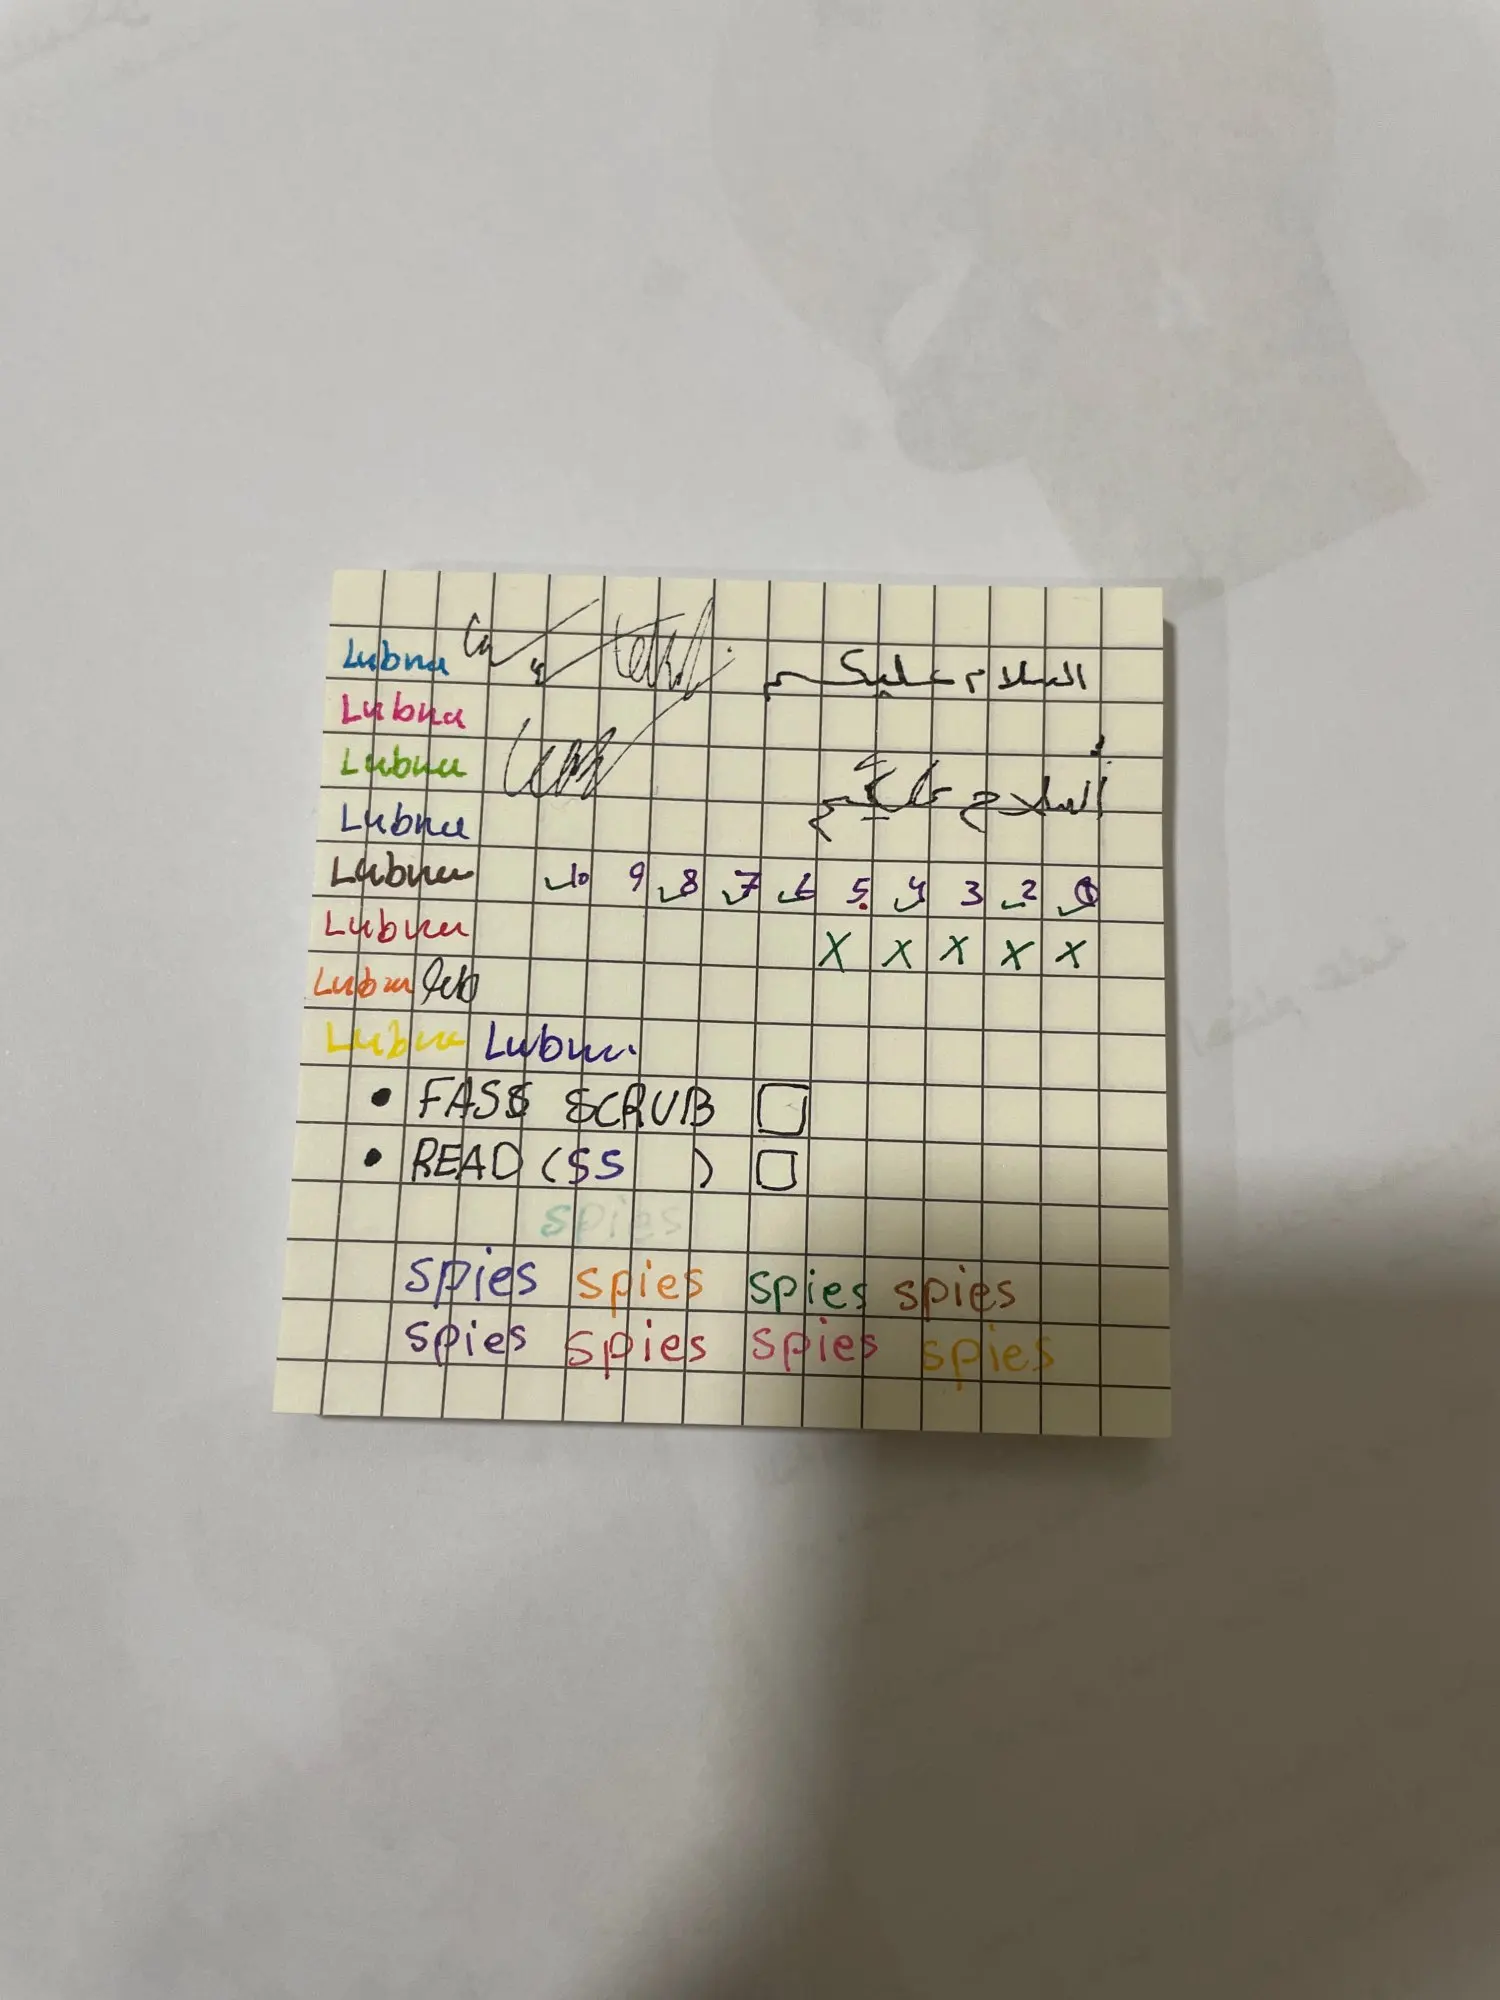 Lubna السلام عليكم
Lubna
Lubna السلام عليكم
Lubna
Lubna 10 9 8 7 6 5 4 3 2 1
Lubna X X X X X
Lubna lub
Lubna Lubna.
• FASS SCRUB
• READ (SS )
spies
spies spies spies spies
spies spies spies spies